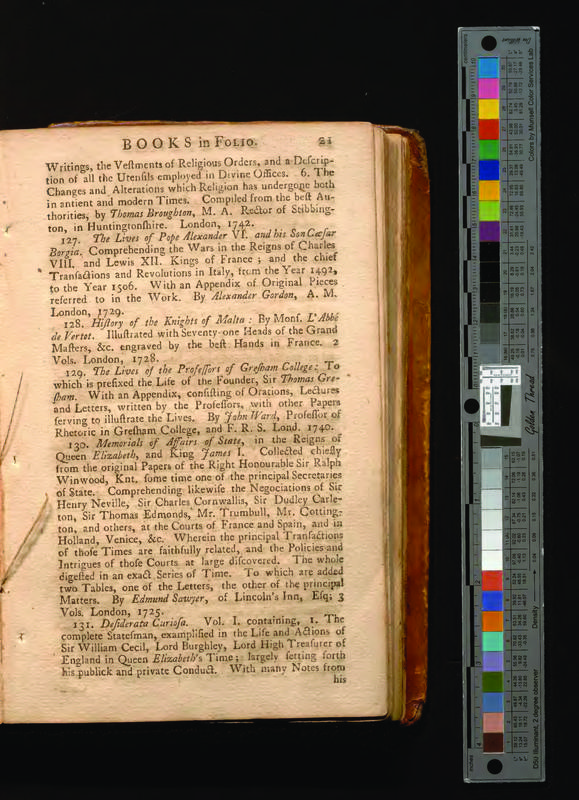 BOOKS in FOLIO. 21
Writings, the Veſtments of Religious Orders, and a Deſcrip-
tion of all the Utenſils employed in Divine Offices. 6. The
Changes and Alterations which Religion has undergone both
in antient and modern Times. Compiled from the beſt Au-
thorities, by Thomas Broughton, M. A. Rector of Stibbing-
ton, in Huntingtonſhire. London, 1742.
127. The Lives of Pope Alexander VI. and his Son Cæſar
Borgia. Comprehending the Wars in the Reigns of Charles
VIII. and Lewis XII. Kings of France; and the chief
Tranſactions and Revolutions in Italy, from the Year 1492,
to the Year 1506. With an Appendix of Original Pieces
referred to in the Work. By Alexander Gordon, A. M.
London, 1729.
128. Hiſtory of the Knights of Malta: By Monſ. L'Abbé
de Vertot. Illuſtrated with Seventy-one Heads of the Grand
Maſters, &c. engraved by the beſt Hands in France. 2
Vols. London, 1728.
129. The Lives of the Profeſſors of Greſham College: To
which is prefixed the Life of the Founder, Sir Thomas Gre-
ſham. With an Appendix, conſiſting of Orations, Lectures
and Letters, written by the Profeſſors, with other Papers
ſerving to illuſtrate the Lives. By John Ward, Profeſſor of
Rhetoric in Greſham College, and F. R. S. Lond. 1740.
130. Memorials of Affairs of State, in the Reigns of
Queen Elizabeth, and King James I. Collected chiefly
from the original Papers of the Right Honourable Sir Ralph
Winwood, Knt. ſome time one of the principal Secretaries
of State. Comprehending likewiſe the Negociations of Sir
Henry Neville, Sir Charles Cornwallis, Sir Dudley Carle-
ton, Sir Thomas Edmonds, Mr. Trumbull, Mr. Cotting-
ton, and others, at the Courts of France and Spain, and in
Holland, Venice, &c. Wherein the principal Tranſactions
of thoſe Times are faithfully related, and the Policies and
Intrigues of thoſe Courts at large diſcovered. The whole
digeſted in an exact Series of Time. To which are added
two Tables, one of the Letters, the other of the principal
Matters. By Edmund Sawyer, of Lincoln's Inn, Eſq; 3
Vols. London, 1725.
131. Deſiderata Curioſa. Vol. I. containing, 1. The
complete Stateſman, examplified in the Life and Actions of
Sir William Cecil, Lord Burghley, Lord High Treaſurer of
England in Queen Elizabeth's Time; largely ſetting forth
his publick and private Conduct. With many Notes from
his
Colors by Munsell Color Services Lab
Golden Thread
Density
D50 Illuminant, 2 degree observer
inches